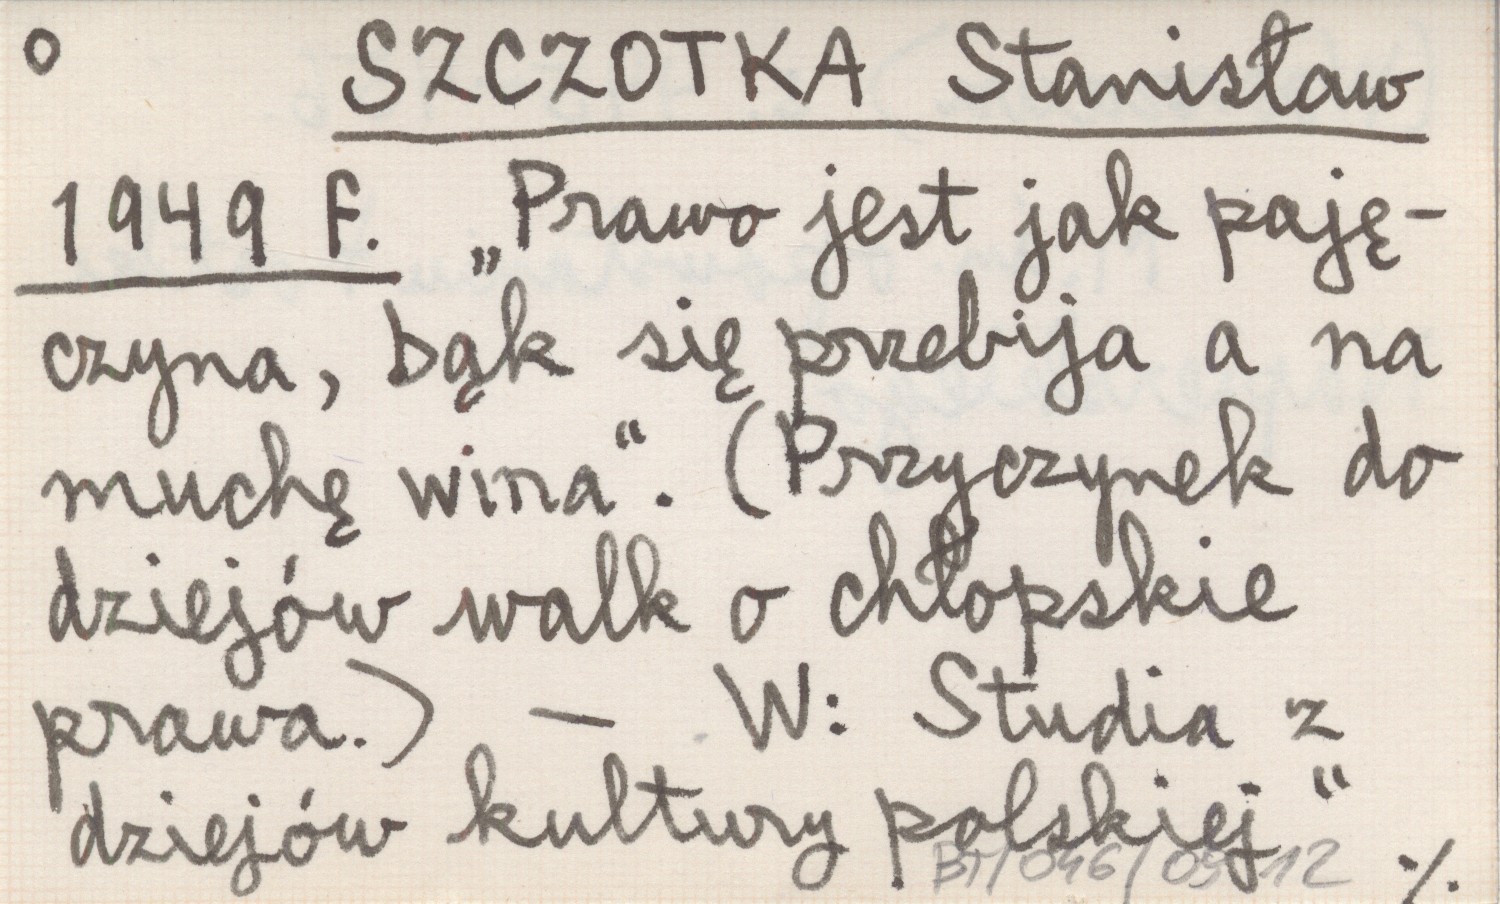 o SZCZOTKA Stanisław
1949 F. „Prawo jest jak paję-
czyna, bąk się przebija a na
muchę wina“. (Przyczynek do
dziejów walk o chłopskie
prawa.) — W: Studia z
dziejów kultury polskiej“
./.